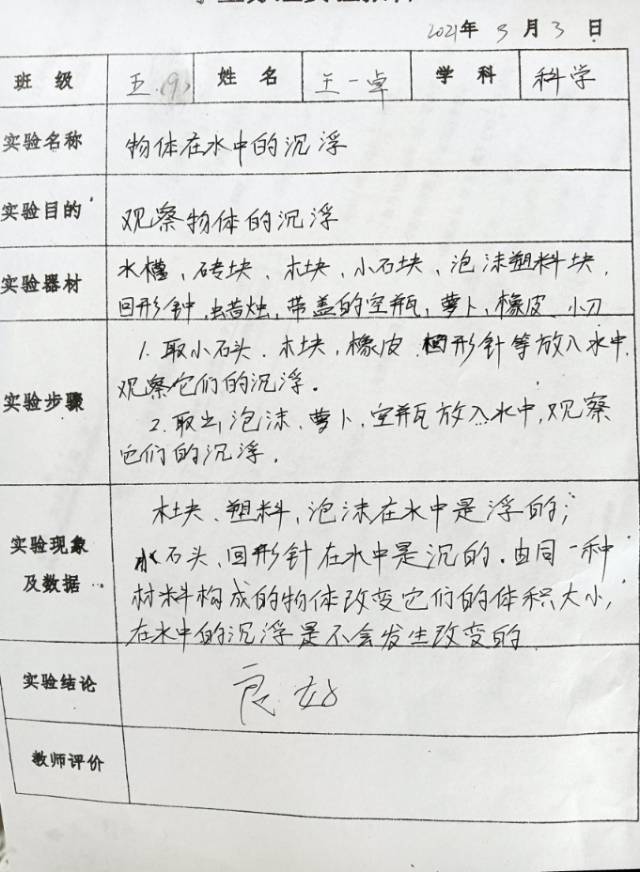 2021年3月3日
班级 五.(9) 姓名 王一卓 学科 科学
实验名称 物体在水中的沉浮
实验目的 观察物体的沉浮
实验器材 水槽、砖块、木块、小石块、泡沫塑料块、
回形针、蜡烛、带盖的空瓶、萝卜、橡皮、小刀
实验步骤 1.取小石头、木块、橡皮、回形针等放入水中,
观察它们的沉浮.
2.取出泡沫、萝卜、空瓶放入水中,观察
它们的沉浮.
实验现象及数据 木块、塑料、泡沫在水中是浮的;
小石头、回形针在水中是沉的.由同一种
材料构成的物体改变它们的体积大小,
在水中的沉浮是不会发生改变的
实验结论 良好
教师评价